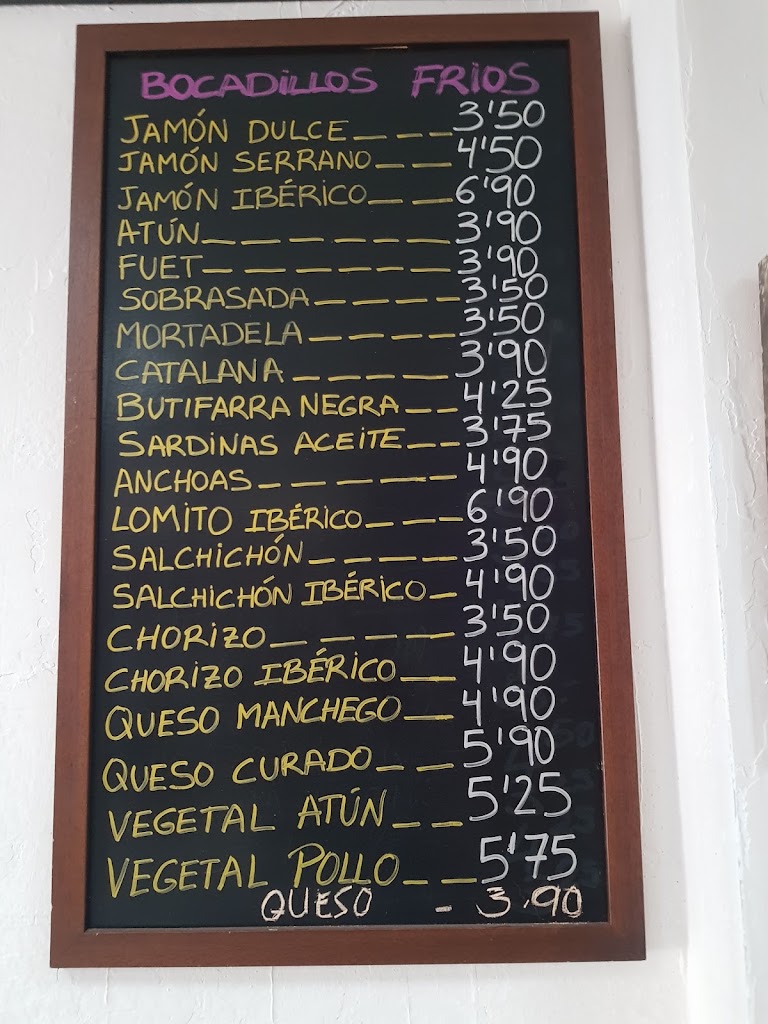 BOCADILLOS FRIOS
JAMÓN DULCE___3'50
JAMÓN SERRANO__4'50
JAMÓN IBÉRICO__6'90
ATÚN______3'90
FUET______3'90
SOBRASADA____3'50
MORTADELA____3'50
CATALANA____3'90
BUTIFARRA NEGRA__4'25
SARDINAS ACEITE__3'75
ANCHOAS_____4'90
LOMITO IBÉRICO___6'90
SALCHICHÓN____3'50
SALCHICHÓN IBÉRICO_4'90
CHORIZO_____3'50
CHORIZO IBÉRICO__4'90
QUESO MANCHEGO__4'90
QUESO CURADO__5'90
VEGETAL ATÚN__5'25
VEGETAL POLLO__5'75
QUESO - 3,90